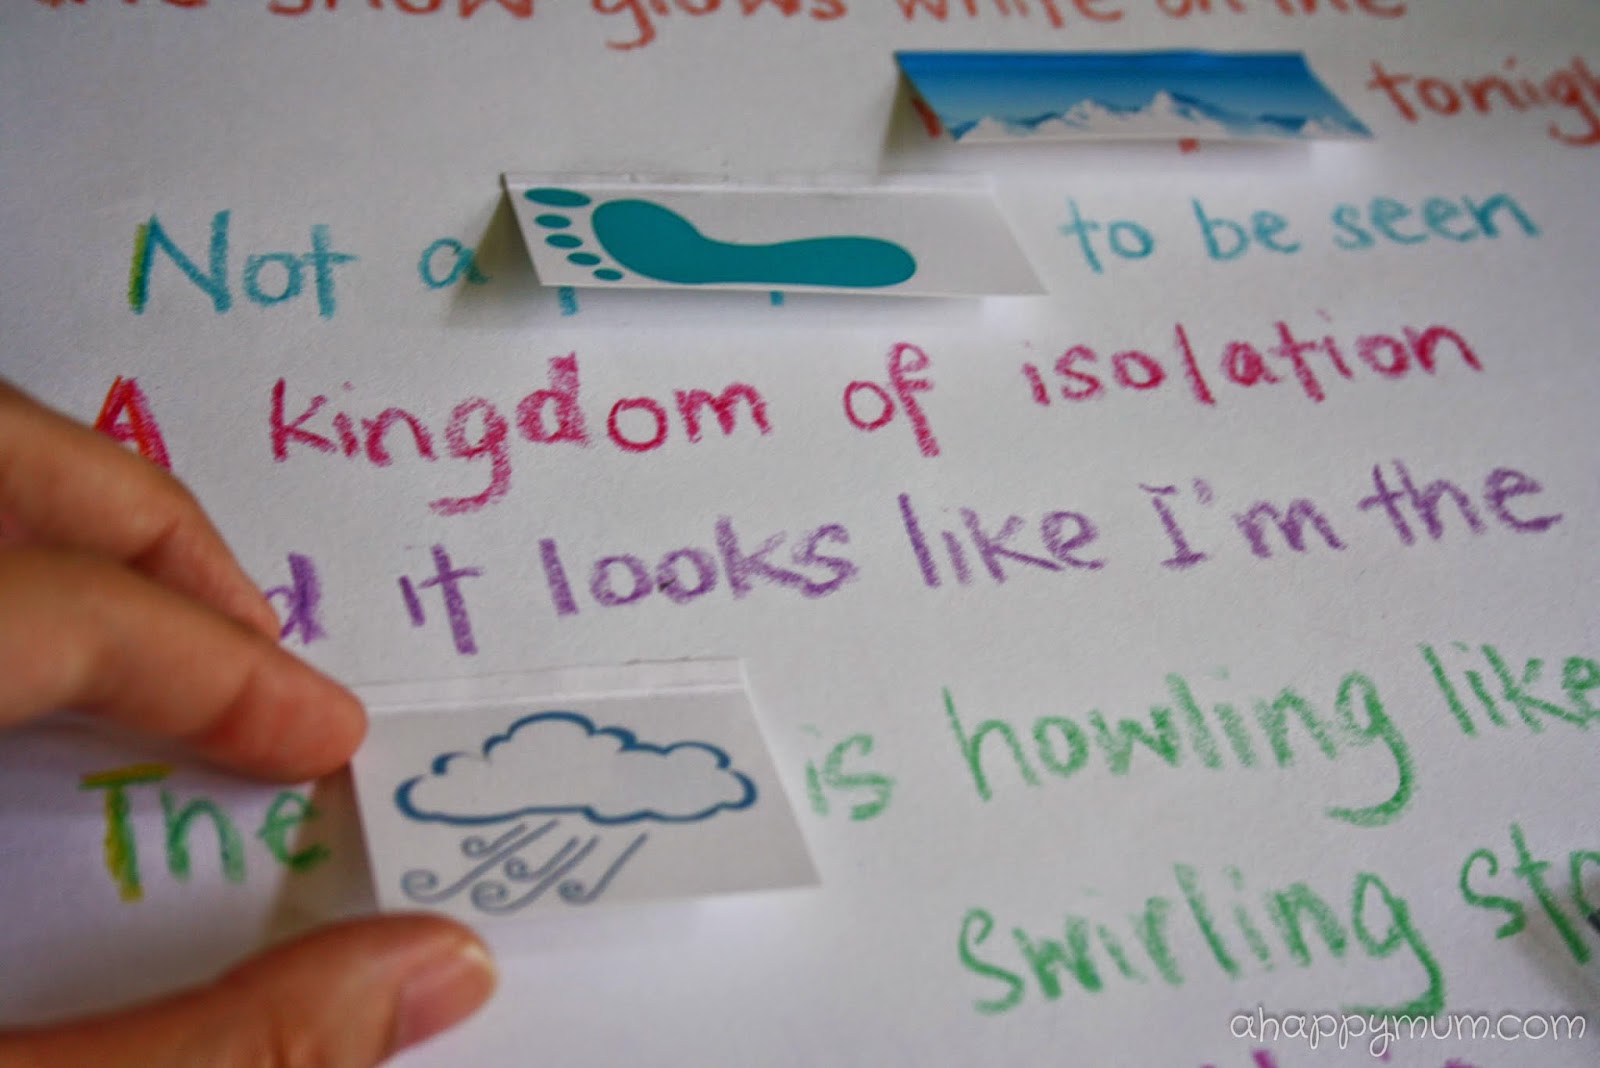 snow glows white on the
tonigh
Not a to be seen
A kingdom of isolation
d it looks like I'm the
The is howling like
swirling sto
ahappymum.com